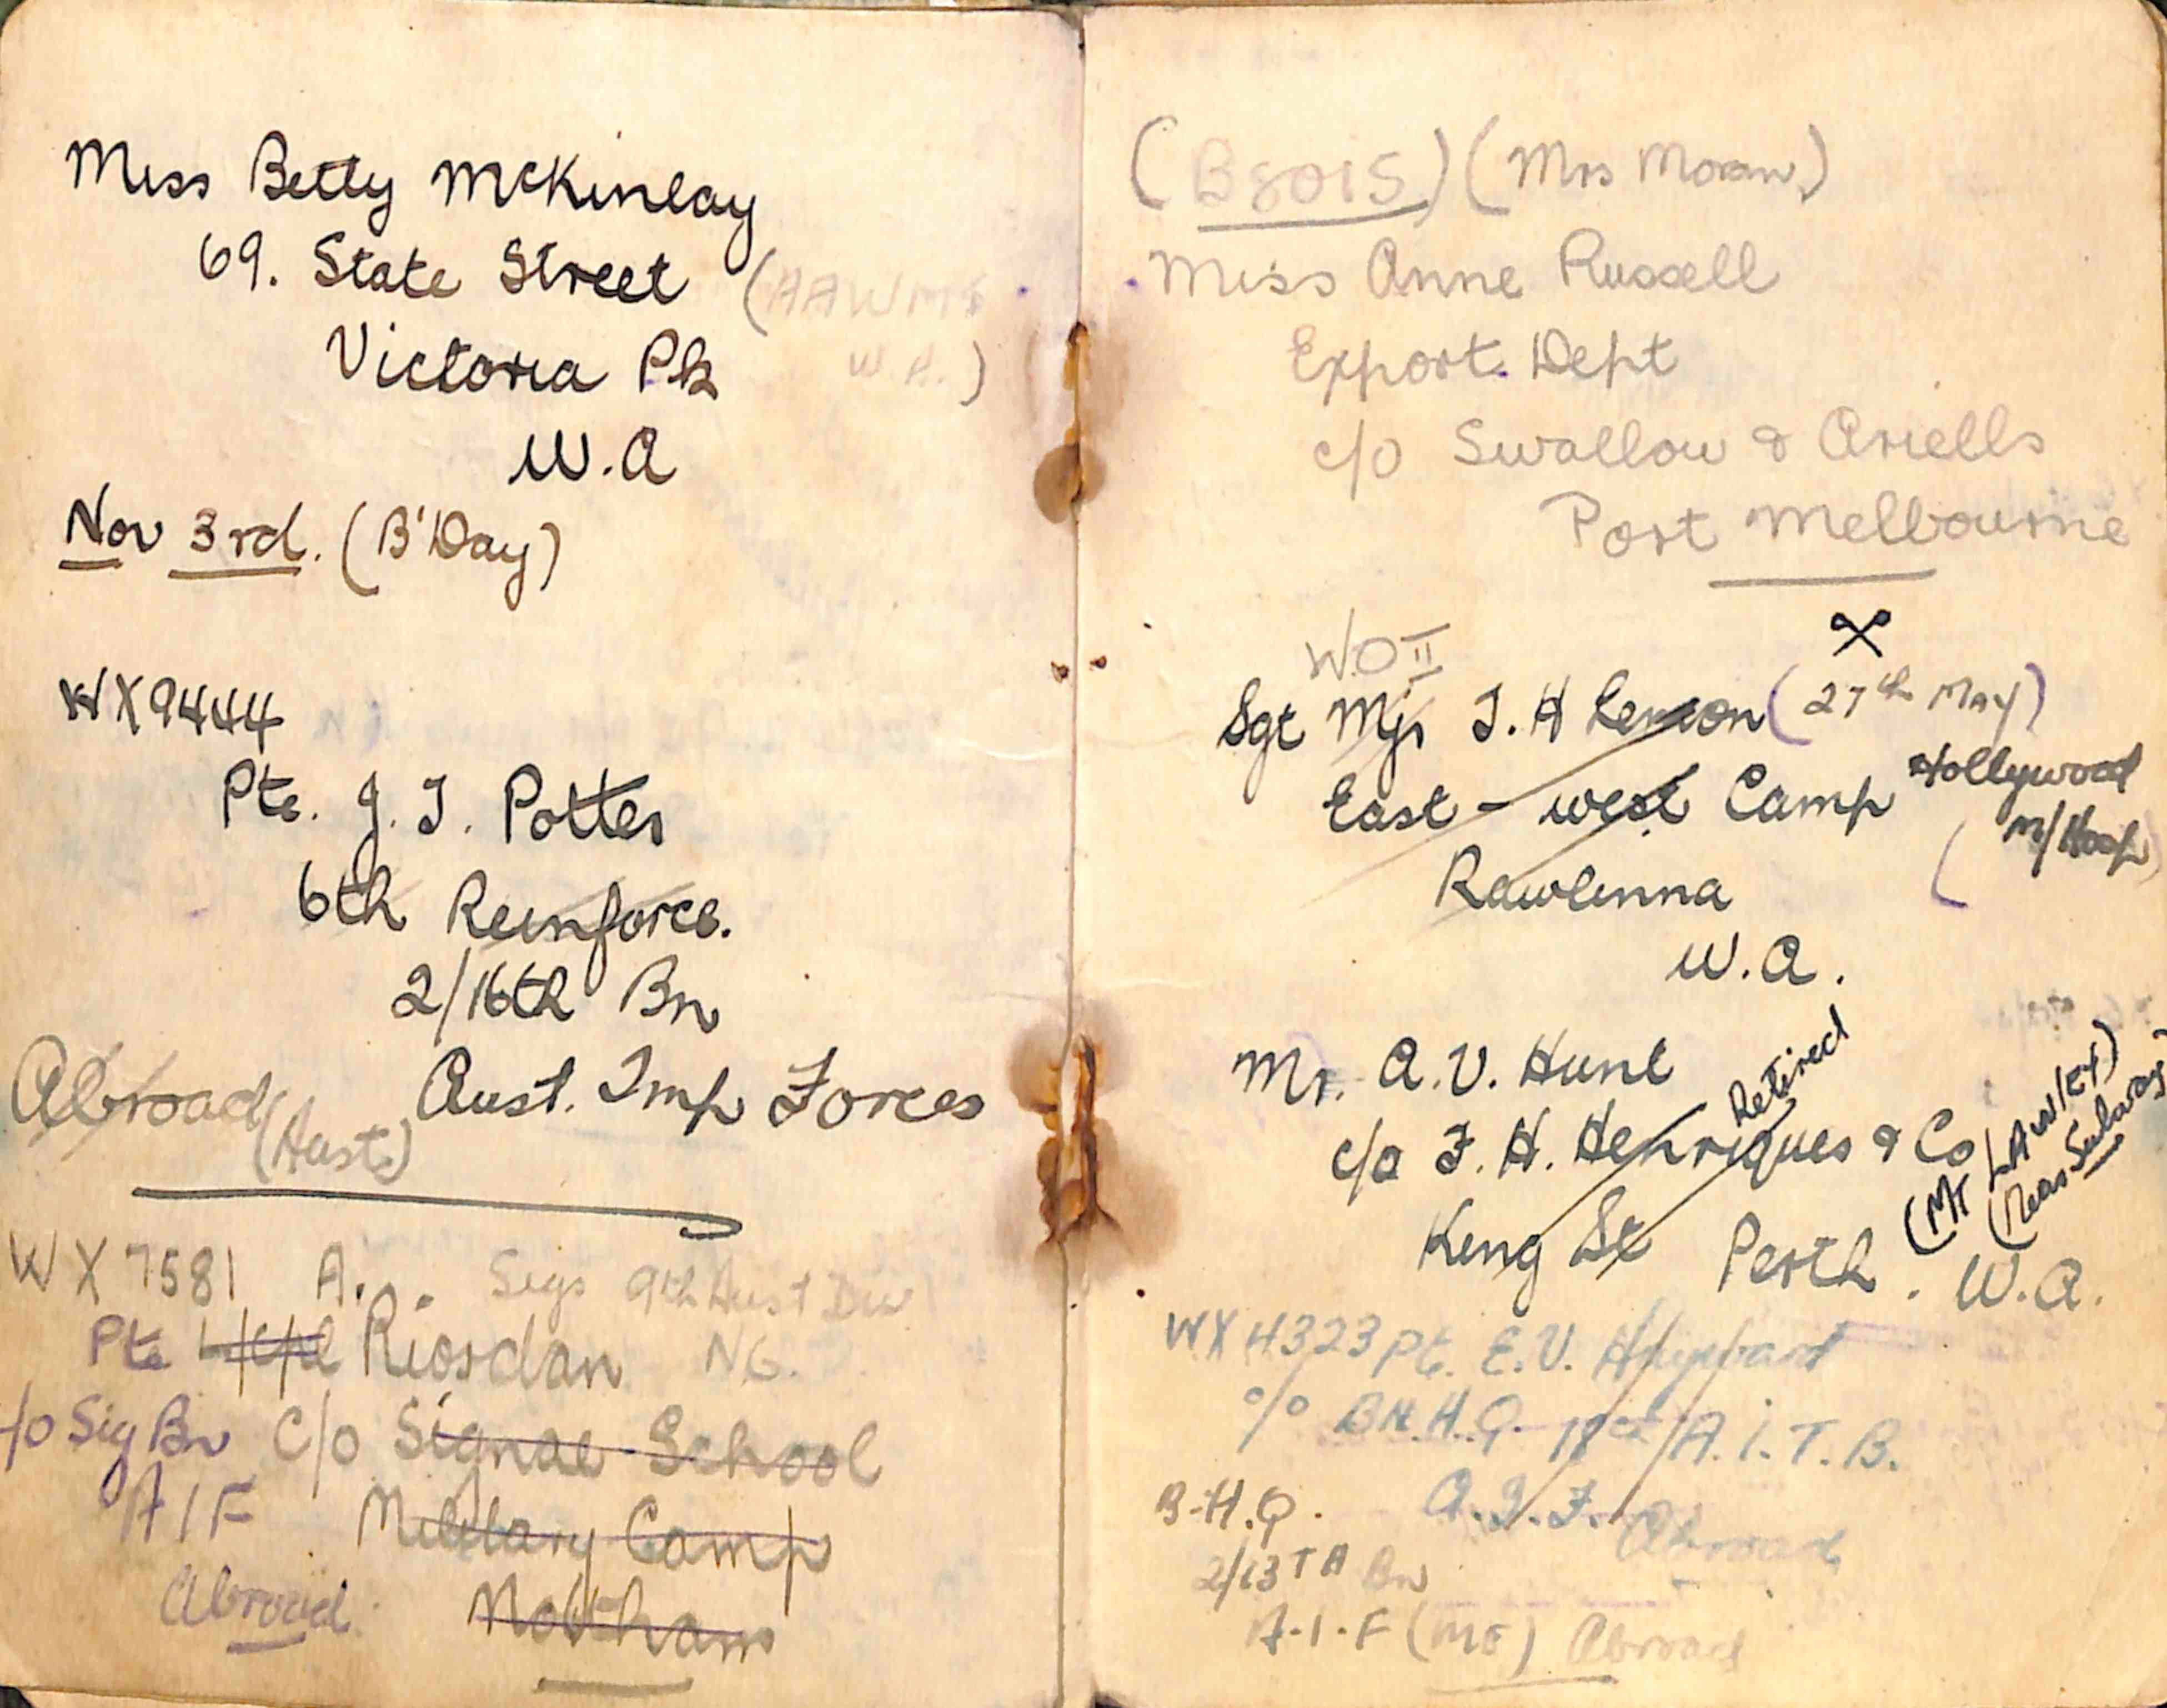 Miss Betty McKinlay
69. State Street (AAWMS
Victoria Pk W.A.)
W.A
Nov 3rd. (B'Day)
WX9444
Pte. J. J. Potter
6th Reinforce.
2/16th Bn
Abroad Aust. Imp Forces
(Aust.)
WX 7581 A. . Sigs 9th Aust Div
Pte L/Cpl Riordan NG.
c/o Sig Bn C/o Signal School
AIF Military Camp
Abroad Northam
(B8015) (Mrs Moran)
Miss Anne Russell
Export. Dept
c/o Swallow & Ariells
Port Melbourne
W.O II
Sgt Mjr J. H Lemon (27th May)
East - West Camp Hollywood
(M/Hosp)
Rawlinna
W.A.
Mr. A.V. Hunt
Retired
c/o F. H. Henriques & Co
(Mr Lawley)
(Near Subway)
King St Perth. W.A.
WX 4323 Pte. E.V.
c/o BN.H.Q. A.I.T.B.
B.H.Q. A.I.F. Abroad
2/13TH Bn
A.I.F (ME) Abroad